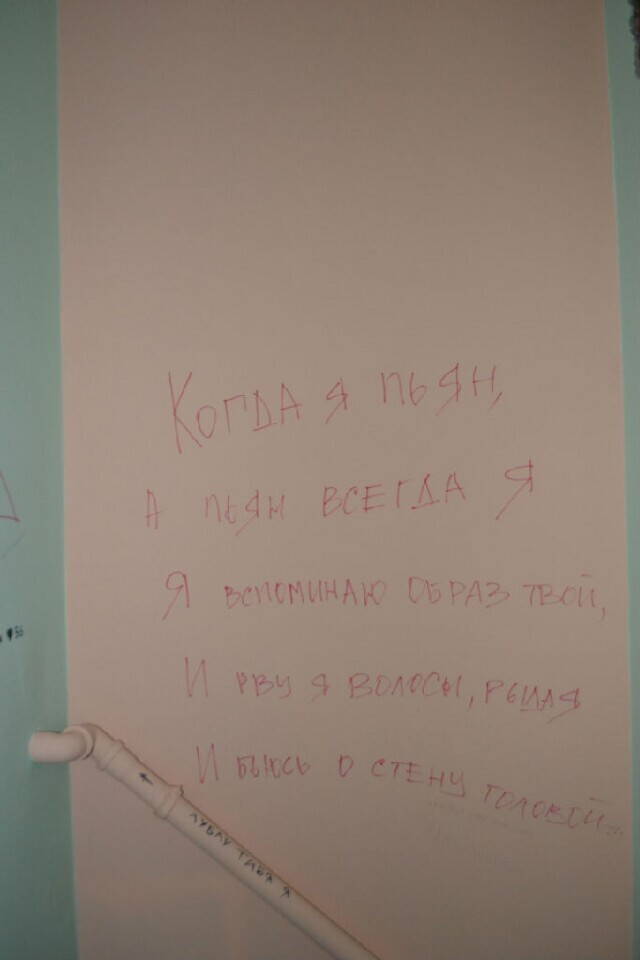 Когда я пьян,
А пьян всегда я
Я вспоминаю образ твой,
И рву я волосы, рыдая
И бьюсь о стену головой...
люблю тебя я